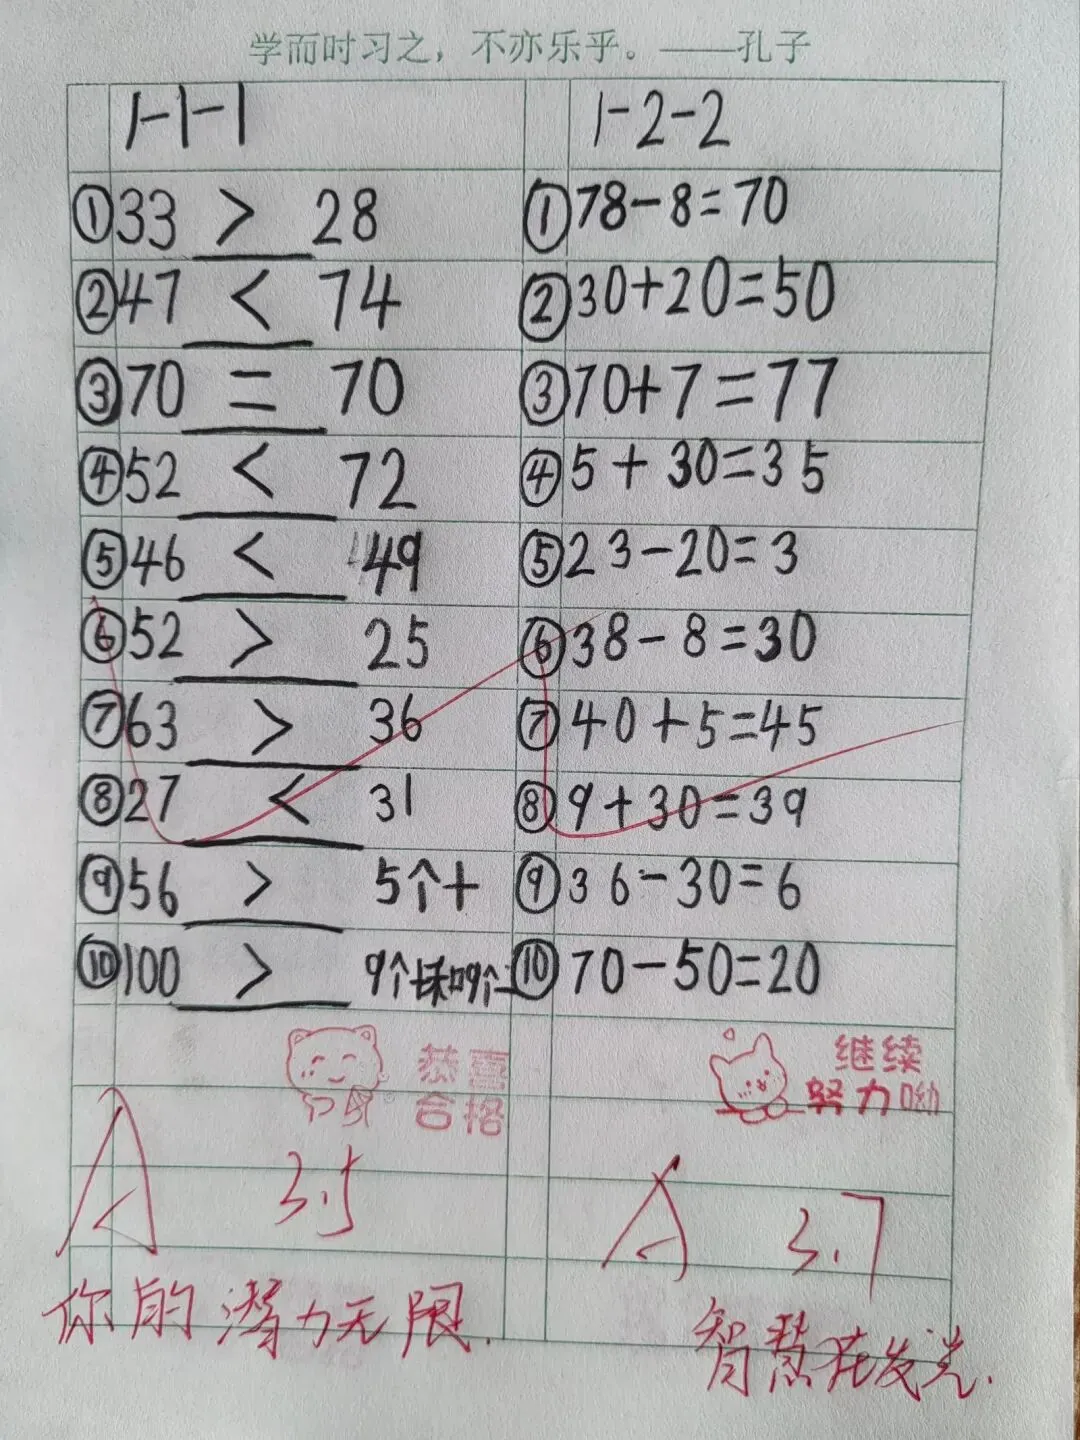 学而时习之，不亦乐乎。——孔子
1-1-1
①33 > 28
②47 < 74
③70 = 70
④52 < 72
⑤46 < 49
⑥52 > 25
⑦63 > 36
⑧27 < 31
⑨56 > 5个十
⑩100 > 9个十和9个一
恭喜
合格
A 3.5
你的潜力无限.
1-2-2
①78-8=70
②30+20=50
③70+7=77
④5+30=35
⑤23-20=3
⑥38-8=30
⑦40+5=45
⑧9+30=39
⑨36-30=6
⑩70-50=20
继续
努力呦
A 3.7
智慧在发光.